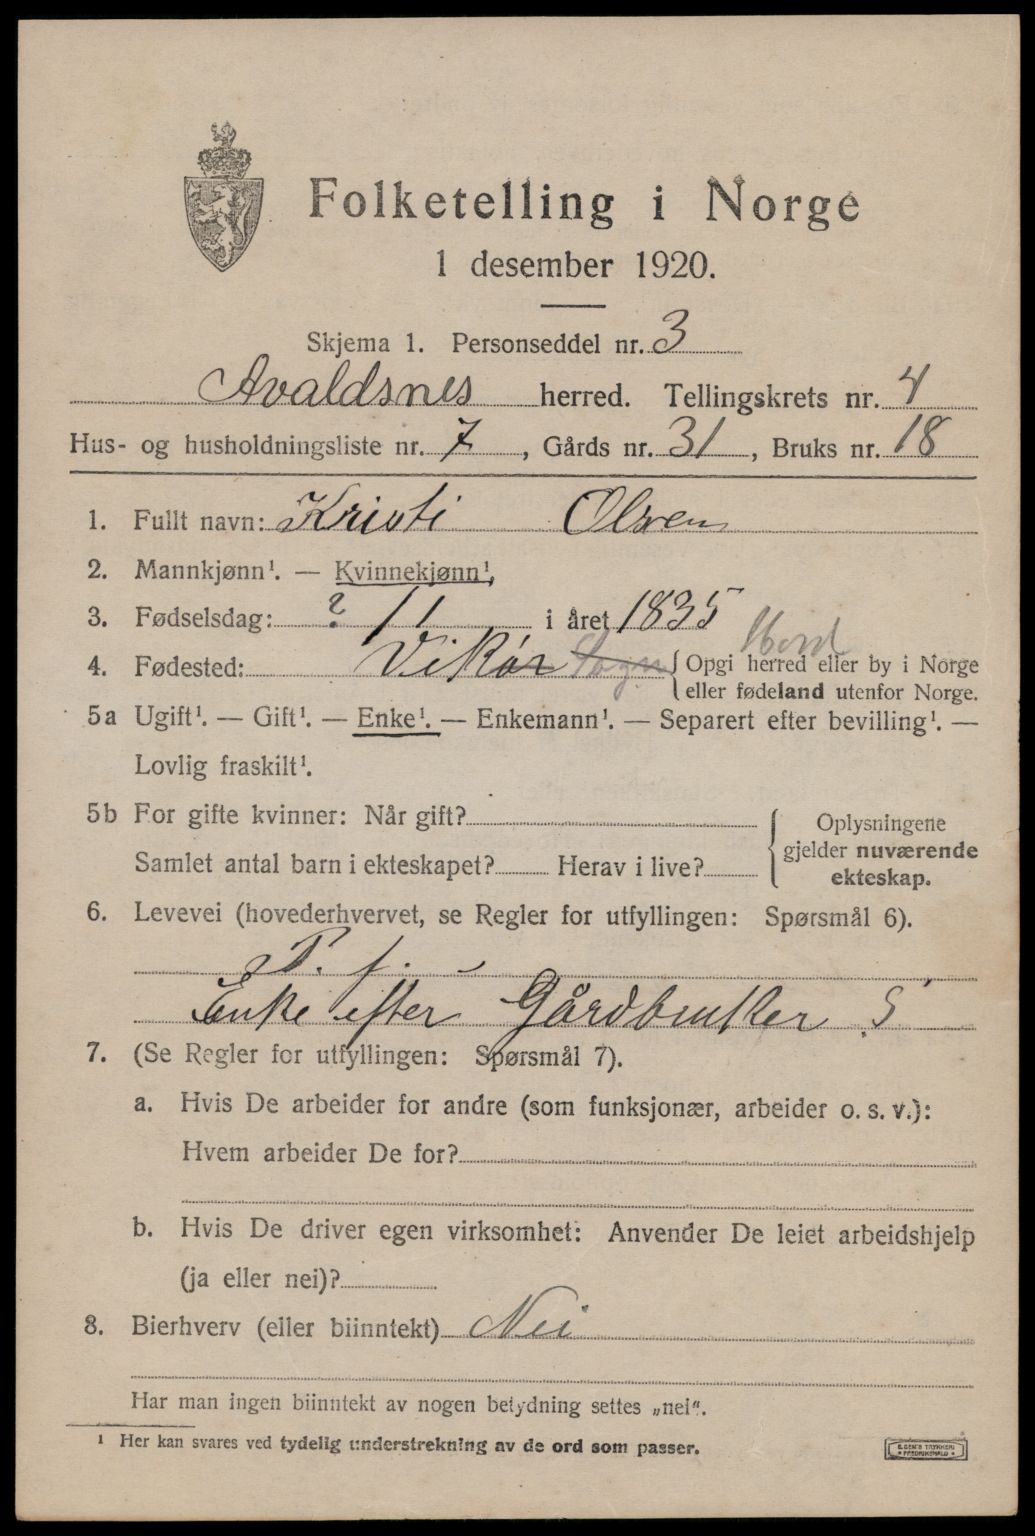 Folketelling i Norge
1 desember 1920.
Skjema 1. Personseddel nr. 3
Avaldsnes herred. Tellingskrets nr. 4
Hus- og husholdningsliste nr. 7, Gårds nr. 31, Bruks nr. 18
1. Fullt navn: Kristi Olsen
2. Mannkjønn¹. — Kvinnekjønn¹.
3. Fødselsdag: ? 11 i året 1835
Hord
4. Fødested: Vikør Sogn { Opgi herred eller by i Norge
eller fødeland utenfor Norge.
5a Ugift¹. — Gift¹. — Enke¹. — Enkemann¹. — Separert efter bevilling¹. —
Lovlig fraskilt¹.
5b For gifte kvinner: Når gift?
Samlet antal barn i ekteskapet? Herav i live?
{ Oplysningene
gjelder nuværende
ekteskap.
6. Levevei (hovederhvervet, se Regler for utfyllingen: Spørsmål 6).
P. f. –
Enke efter Gårdbruker S
7. (Se Regler for utfyllingen: Spørsmål 7).
a. Hvis De arbeider for andre (som funksjonær, arbeider o. s. v.):
Hvem arbeider De for?
b. Hvis De driver egen virksomhet: Anvender De leiet arbeidshjelp
(ja eller nei)?
8. Bierhverv (eller biinntekt) Nei
Har man ingen biinntekt av nogen betydning settes „nei“.
¹ Her kan svares ved tydelig understrekning av de ord som passer.
E. SEM'S TRYKKERI
* FREDRIKSHALD *